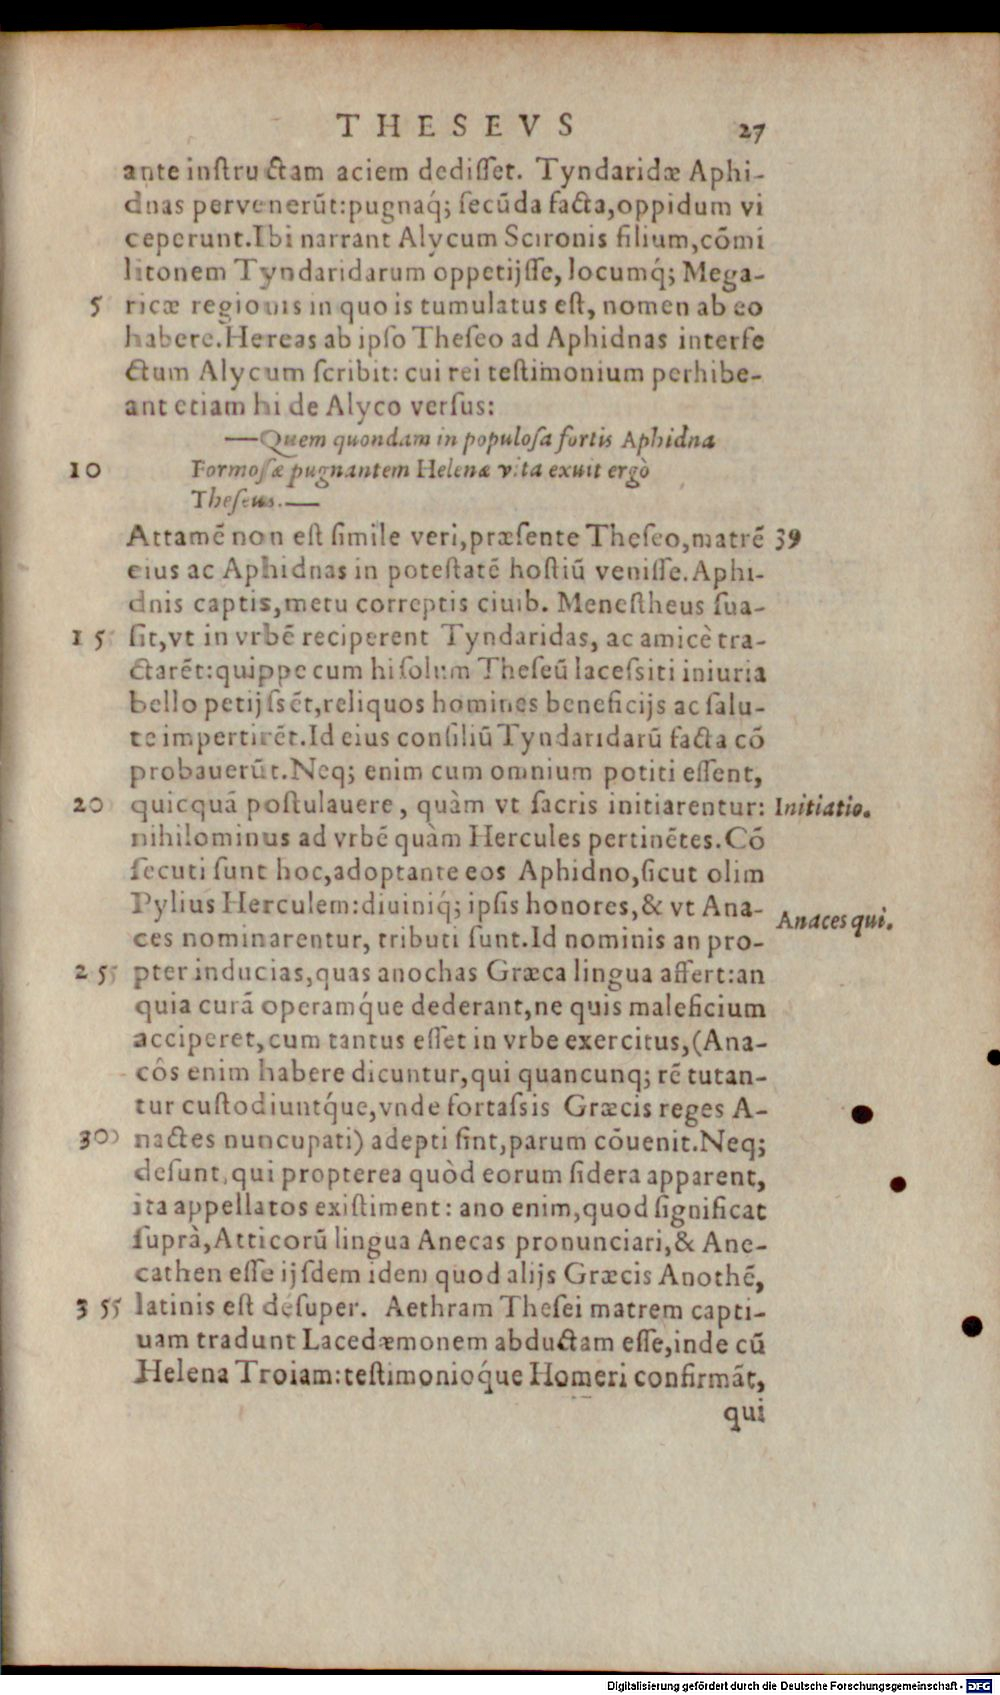 THESEVS 27
ante instructam aciem dedisset. Tyndaridæ Aphi-
dnas pervenerũt:pugnaq́; secũda facta,oppidum vi
ceperunt.Ibi narrant Alycum Scironis filium,cõmi
litonem Tyndaridarum oppetijsse, locumq́; Mega-
5 ricæ regionis in quo is tumulatus est, nomen ab eo
habere.Hereas ab ipso Theseo ad Aphidnas interfe
ctum Alycum scribit: cui rei testimonium perhibe-
ant etiam hi de Alyco versus:
—Quem quondam in populosa fortis Aphidna
10 Formosæ pugnantem Helenæ vita exuit ergò
Theseus.—
Attamẽ non est simile veri,præsente Theseo,matrẽ 39
eius ac Aphidnas in potestatẽ hostiũ venisse.Aphi-
dnis captis,metu correptis ciuib. Menestheus sua-
15 sit,vt in vrbẽ reciperent Tyndaridas, ac amicè tra-
ctarẽt:quippe cum hi solum Theseũ lacessiti iniuria
bello petijssẽt,reliquos homines beneficijs ac salu-
te impertirẽt.Id eius consiliũ Tyndaridarũ facta cõ
probauerũt.Neq; enim cum omnium potiti essent,
20 quicquã postulauere, quàm vt sacris initiarentur: Initiatio.
nihilominus ad vrbẽ quàm Hercules pertinẽtes.Cõ
secuti sunt hoc,adoptante eos Aphidno,sicut olim
Pylius Herculem:diuiniq́; ipsis honores,& vt Ana-
Anaces qui.
ces nominarentur, tributi sunt.Id nominis an pro-
25 pter inducias,quas anochas Græca lingua affert:an
quia curã operamq́ue dederant,ne quis maleficium
acciperet,cum tantus esset in vrbe exercitus,(Ana-
côs enim habere dicuntur,qui quancunq; rẽ tutan-
tur custodiuntq́ue,vnde fortassis Græcis reges A-
30 nactes nuncupati) adepti sint,parum cõuenit.Neq;
desunt,qui propterea quòd eorum sidera apparent,
ita appellatos existiment: ano enim,quod significat
suprà,Atticorũ lingua Anecas pronunciari,& Ane-
cathen esse ijsdem idem quod alijs Græcis Anothẽ,
35 latinis est désuper. Aethram Thesei matrem capti-
uam tradunt Lacedæmonem abductam esse,inde cũ
Helena Troiam:testimonioq́ue Homeri confirmãt,
qui
Digitalisierung gefördert durch die Deutsche Forschungsgemeinschaft - DFG